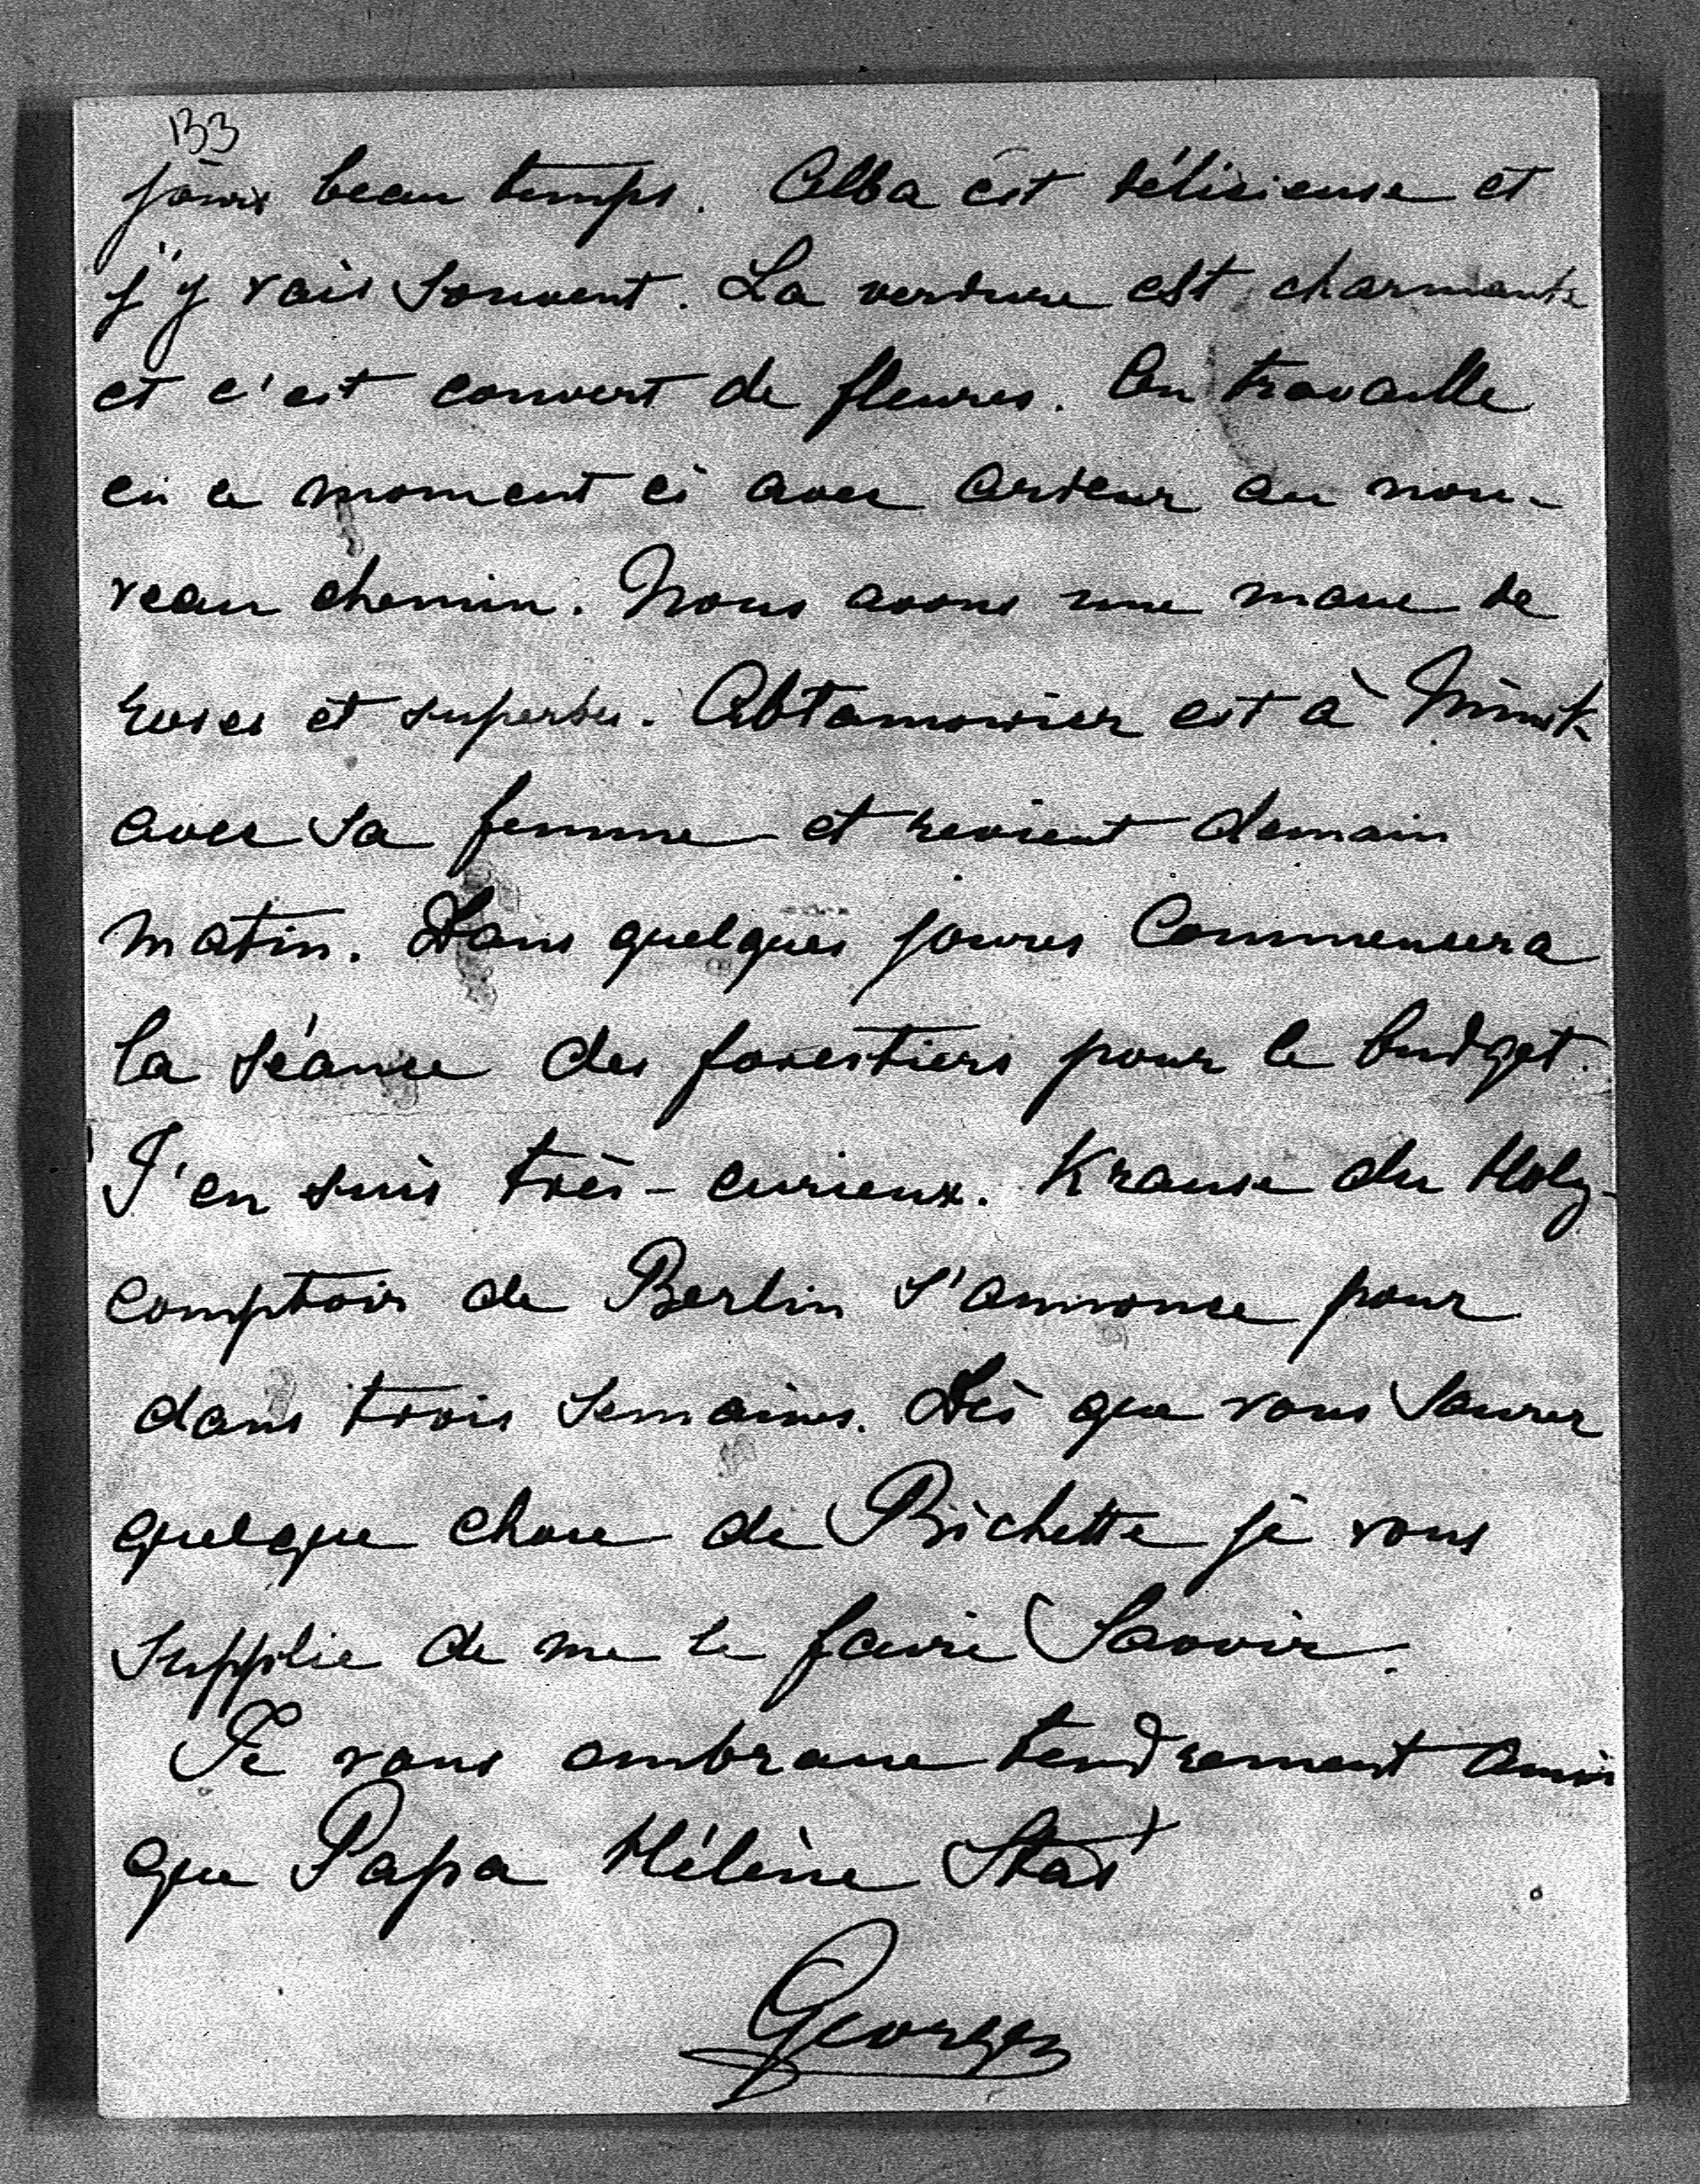 133
jours beau temps. Alba est délicieuse et
j'y vais souvent. La verdure est charmante
et c'est couvert de fleures. On travaille
en ce moment ci avec ardeur au nou-
veau chemin. Nous avons une masse de
roses et superbes. Abtamowicz est à Minsk
avec sa femme et revient demain
matin. Dans quelques jours commencera
la séance des forestiers pour le budget.
J'en suis très-curieux. Krause du Holz-
comptoir de Berlin s'annonce pour
dans trois semaines. Dès que vous saurez
quelque chose de Bichette je vous
supplie de me le faire savoir.
Je vous embrasse tendrement ainsi
que Papa Hélène Stas
Georges